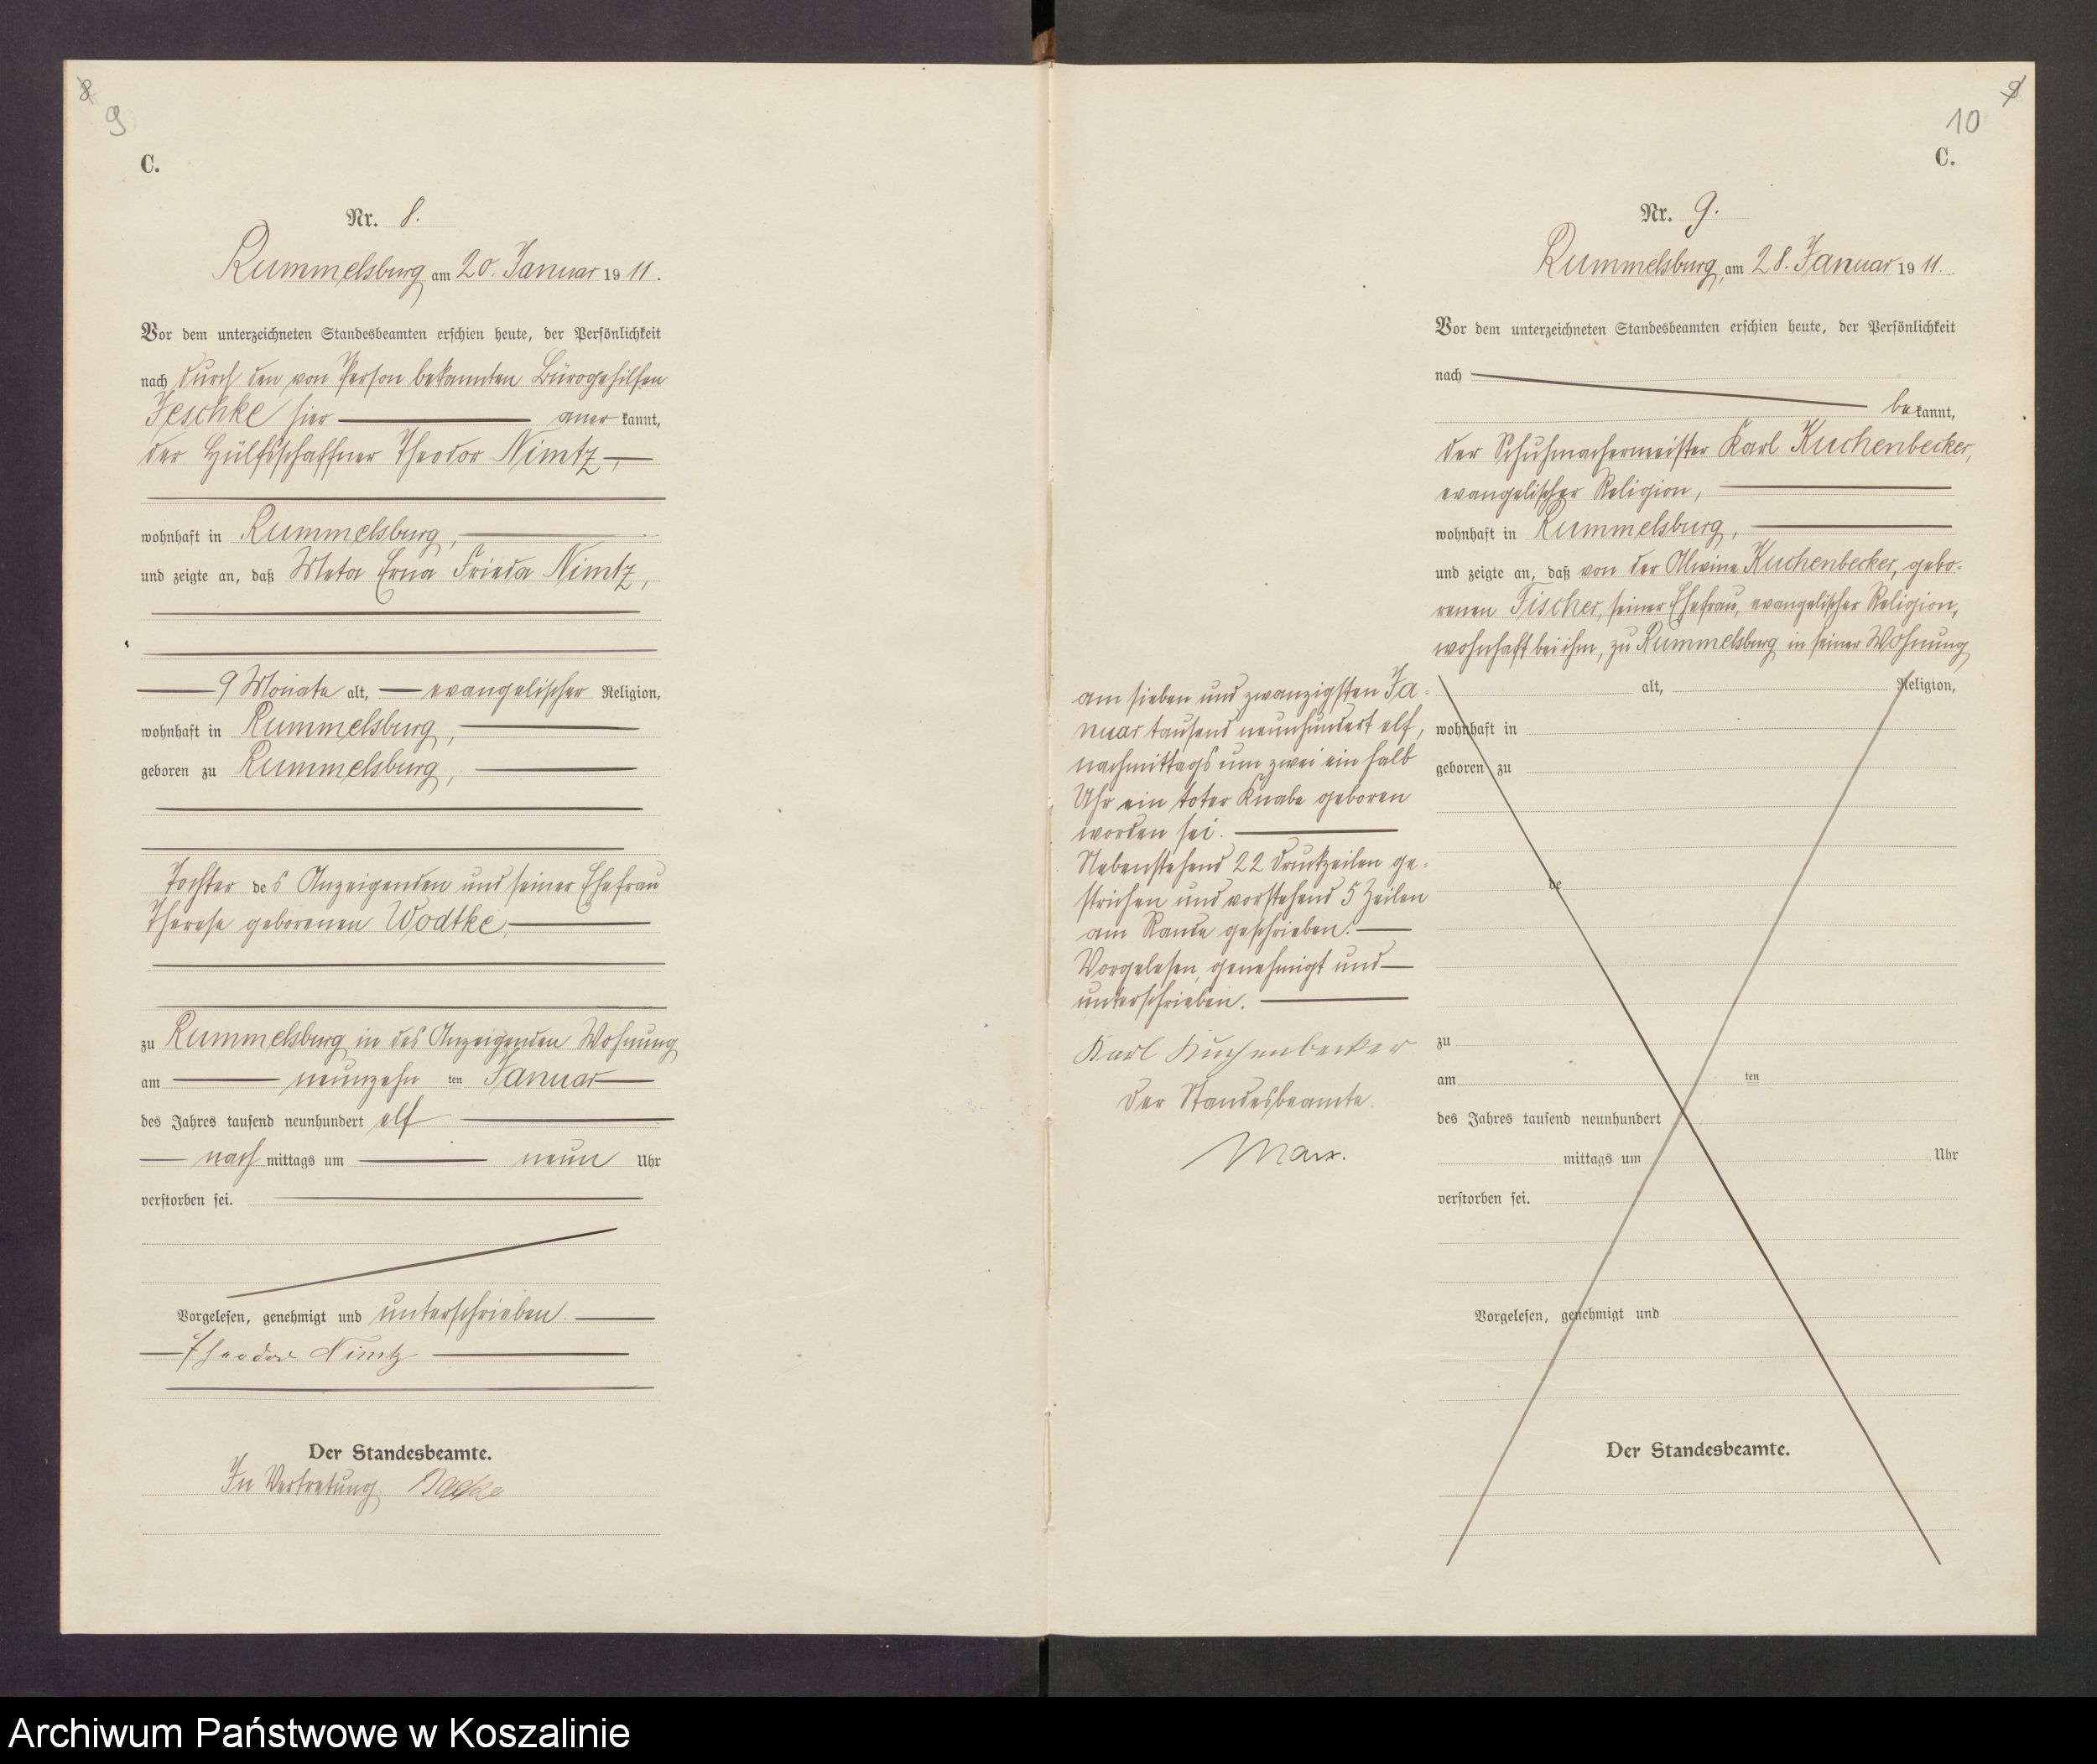 8
9
C.
Nr. 8.
Rummelsburg am 20. Januar 1911.
Vor dem unterzeichneten Standesbeamten erschien heute, der Persönlichkeit
nach durch den von Person bekannten Bürogehilfen
Jeschke hier anerkannt,
der Hülfsschaffner Theodor Nimtz,
wohnhaft in Rummelsburg,
und zeigte an, daß Meta Erna Frieda Nimtz,
9 Monate alt, evangelischer Religion,
wohnhaft in Rummelsburg,
geboren zu Rummelsburg,
Tochter des Anzeigenden und seiner Ehefrau
Therese geborenen Wodtke,
zu Rummelsburg in des Anzeigenden Wohnung
am neunzehn ten Januar
des Jahres tausend neunhundert elf
nachmittags um neun Uhr
verstorben sei.
Vorgelesen, genehmigt und unterschrieben.
Theodor Nimtz
Der Standesbeamte.
In Vertretung
9
10
C.
Nr. 9.
Rummelsburg, am 28. Januar 1911.
Vor dem unterzeichneten Standesbeamten erschien heute, der Persönlichkeit
nach
bekannt,
der Schuhmachermeister Karl Kuchenbecker,
evangelischer Religion,
wohnhaft in Rummelsburg,
und zeigte an, daß von der Alwine Kuchenbecker, gebo-
renen Fischer, seiner Ehefrau, evangelischer Religion,
wohnhaft bei ihm, zu Rummelsburg in seiner Wohnung
am sieben und zwanzigsten Ja-
nuar tausend neunhundert elf,
nachmittags um zwei ein halb
Uhr ein toter Knabe geboren
worden sei.
Nebenstehend 22 Druckzeilen ge-
strichen und vorstehend 5 Zeilen
am Rande geschrieben.
Vorgelesen, genehmigt und
unterschrieben.
Karl Kuchenbecker
Der Standesbeamte.
Marx.
alt, Religion,
wohnhaft in
geboren zu
de
zu
am ten
des Jahres tausend neunhundert
mittags um Uhr
verstorben sei.
Vorgelesen, genehmigt und
Der Standesbeamte.
Archiwum Państwowe w Koszalinie